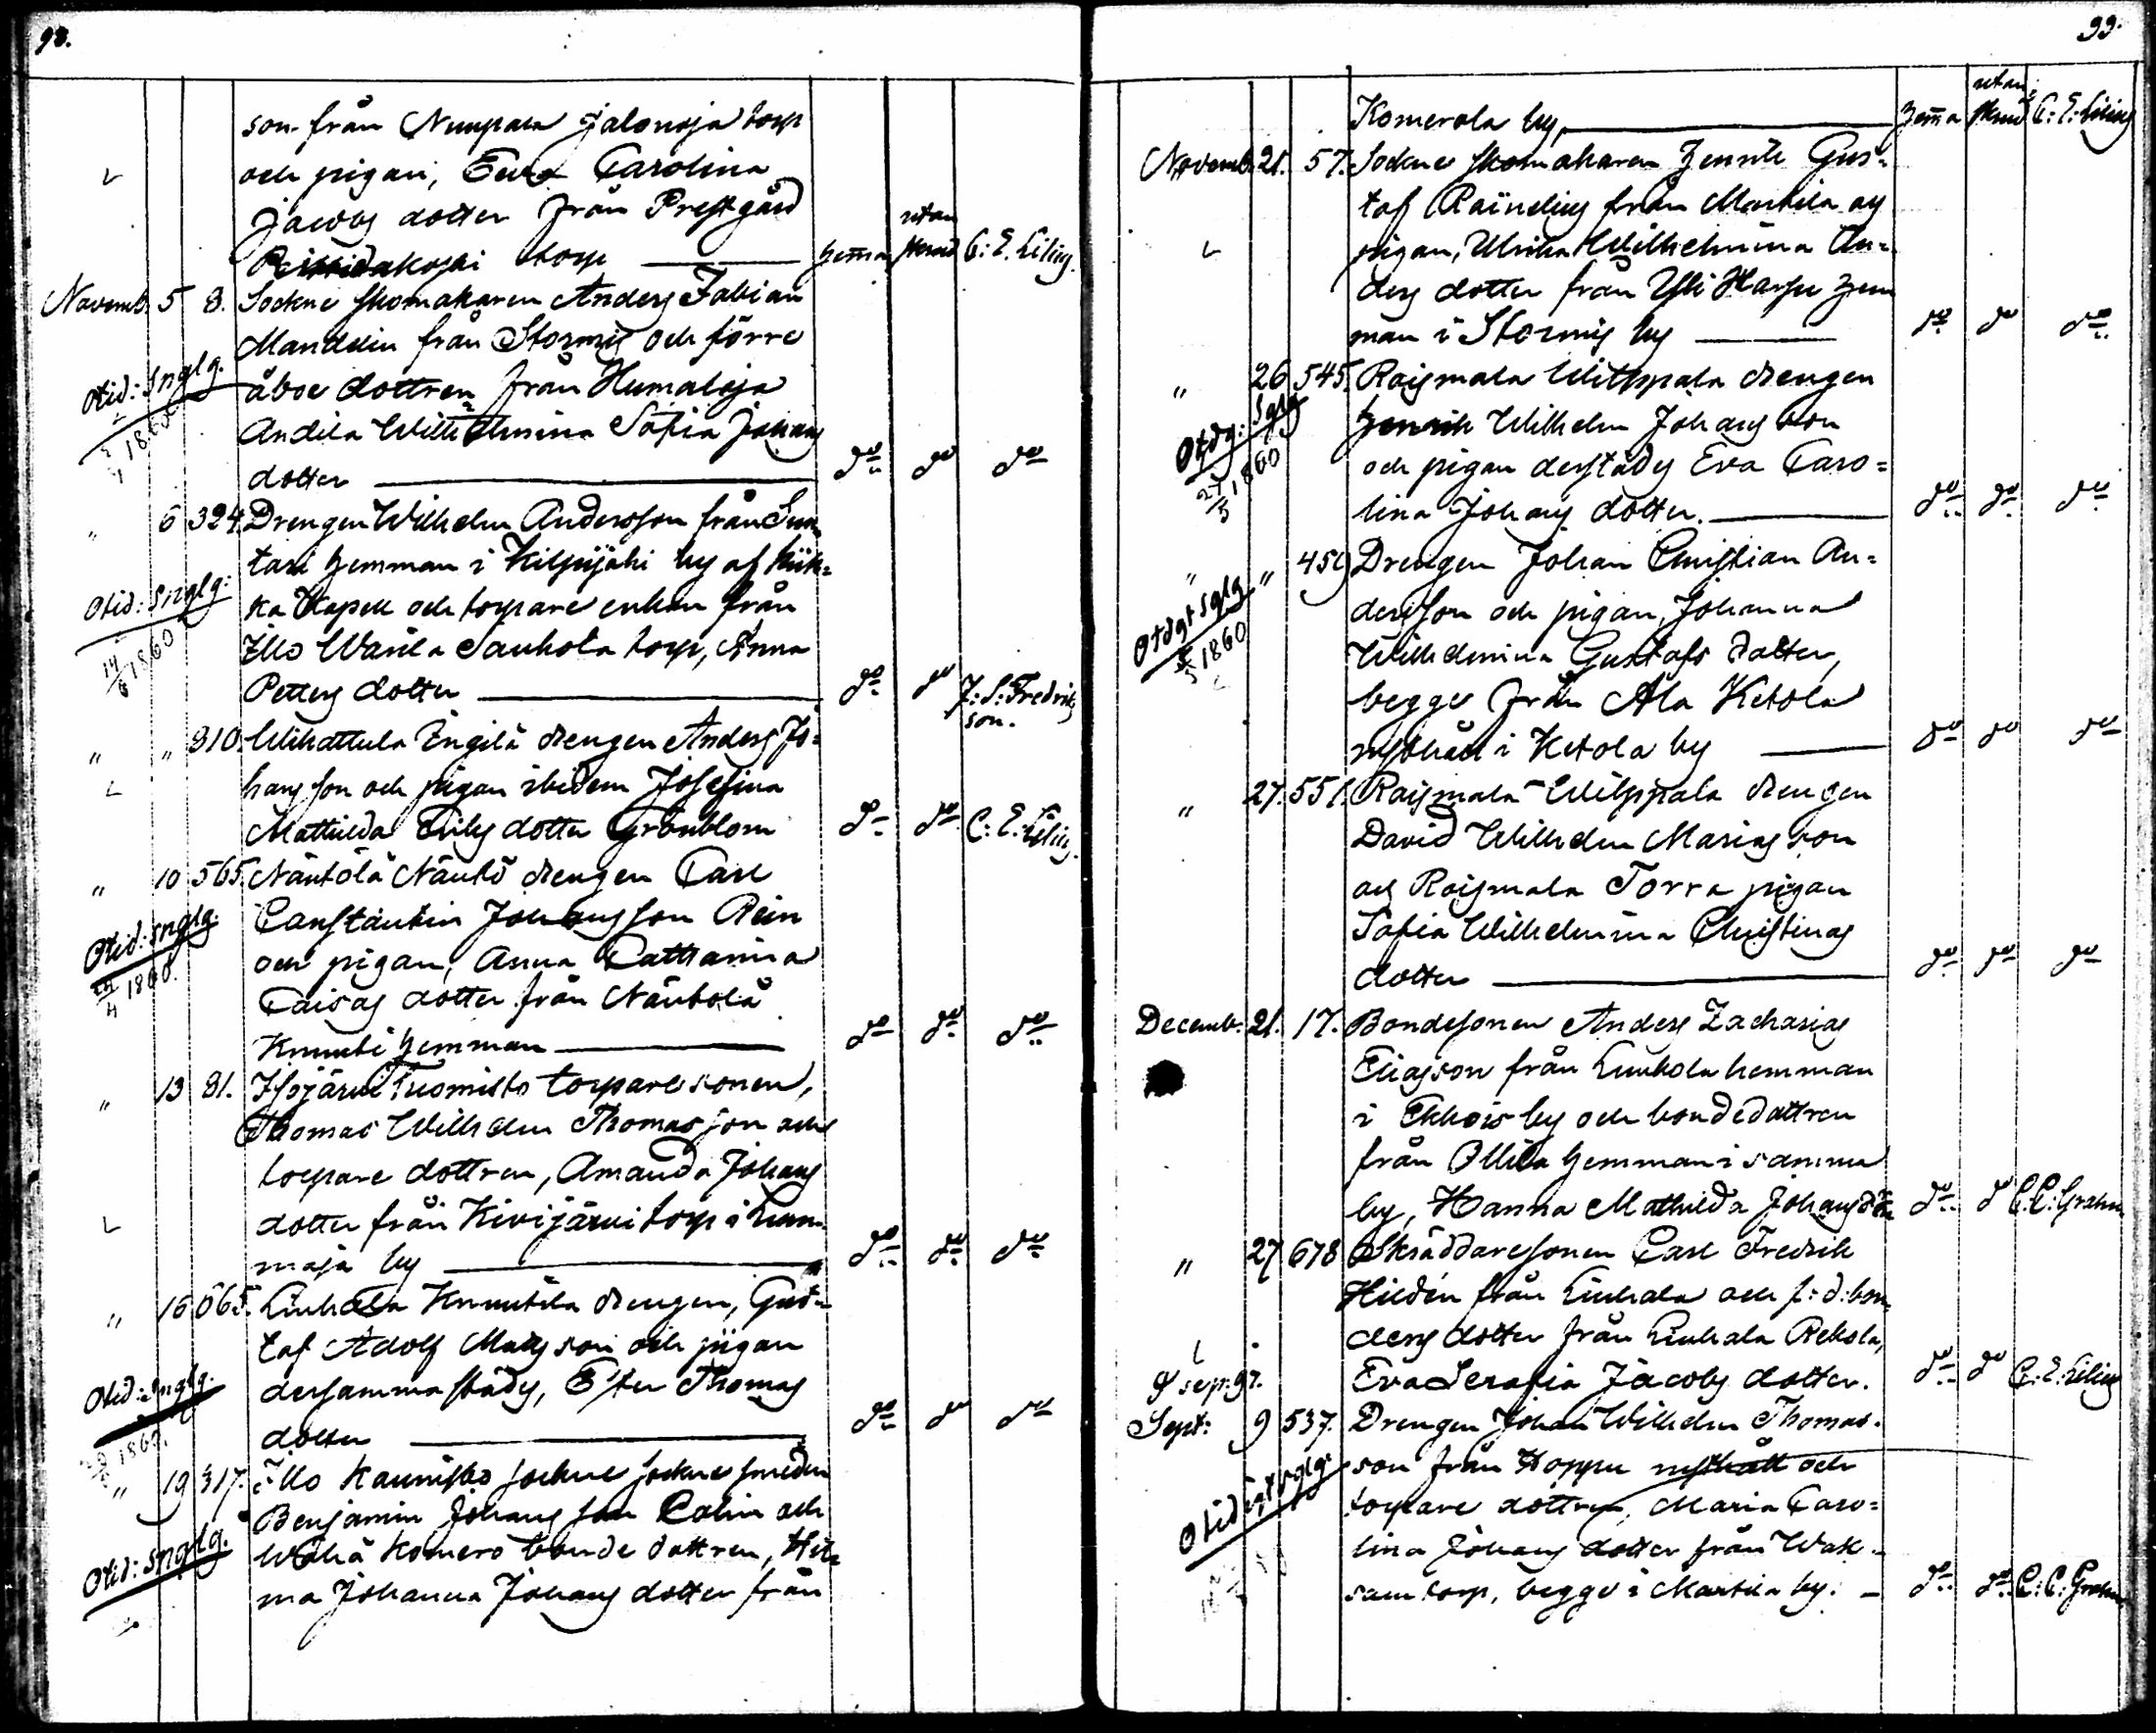 98.
son från Nuupala Jalonoja torp
och pigan, Eva Carolina
Jacobs dotter från Prestgård
torp hemma utan skrud C: E: Lilius.
Novemb. 5 8. Sockne skomakaren Anders Fabian
Mandelin från Stormis och förre
Otid: snglg. åboe dottren från Humaloja
1860 Andila Wilhelmina Sofia Johans
dotter do do do
" 6 324. Drengen Wilhelm Andersson från Sun
tari hemman i Kilpijoki by af Kiik=
Otid: snglg: ka Kapell och torpare enkan från
14/6 1860 Illo Warila Sauhola torp, Anna
Petters dotter do do J: S: Fredriks
son.
" " 810. Wihattula Engilä drengen Anders Jo=
hansson och pigan ibidem Josefina
Mathilda Eriks dotter Grönblom do do C: E: Lilius.
" 10 565. Näntölä Näntö drengen Carl
Otid: snglg. Constantin Johansson Rein
1860. och pigan, Anna Catharina
Caisas dotter från Näntölä
Knuuti hemman do do do
" 13 81. Isojärvi Tuomisto torpare sonen,
Thomas Wilhelm Thomasson och
torpare dottren, Amanda Johans
dotter från Kivijärvi torp i Lum=
maja by do do do
" 16 665. Liuhala Knuutila drengen, Gus=
taf Adolf Matsson och pigan
Otid: snglg. dersammastäds, Ester Thomas
1860. dotter do do do
" 19 317. Illo Kaunisto sockne sockne smeden
Benjamin Johansson Colin och
Otid: snglg. Komero bonde dottren, Hel=
ma Johanna Johans dotter från
99.
Komerola by, hemma utan skrud C: E: Lilius
Novemb. 21. 57. Sockne skomakaren Henrik Gus=
taf Raindelius från Martila och
pigan, Ulrika Wilhelmina An=
ders dotter från Yli Harju hem
man i Stormis by do do do
" 26 545. Roismala Wilppala drengen
Otdg: sglg Henrik Wilhelm Johansson
27/5 1860 och pigan derstäds Eva Caro=
lina Johans dotter. do do do
" " 459 Drengen Johan Christian An=
Otdgt sglg dersson och pigan, Johanna
1860 Wilhelmina Gustafs dotter,
begge från Ala Ketola
rusthåll i Ketola by do do do
" 27. 551. Roismala Wilppala drengen
David Wilhelm Mariasson
och Roismala Torra pigan
Sofia Wilhelmina Christinas
dotter do do do
Decemb. 21. 17. Bondesonen Anders Zacharias
Eliasson från Liuhola hemman
i Ekkois by och bondedottren
från Ollila hemman i samma
by, Hanna Mathilda Johansdtr do do C. C: Grahn
" 27 678 Skräddaresonen Carl Fredrik
Hildén från Liuhala och f: d: bon
ders dotter från Liuhala Rekola,
Eva Serafia Jacobs dotter. do do C: E: Lilius
Sept: 9 537. Drengen Johan Wilhelm Thomas-
son från Hoppu rusthåll och
torpare dottren, Maria Caro=
lina Johans dotter från Wak-
sam torp, begge i Martila by. do do C: C: Grahn